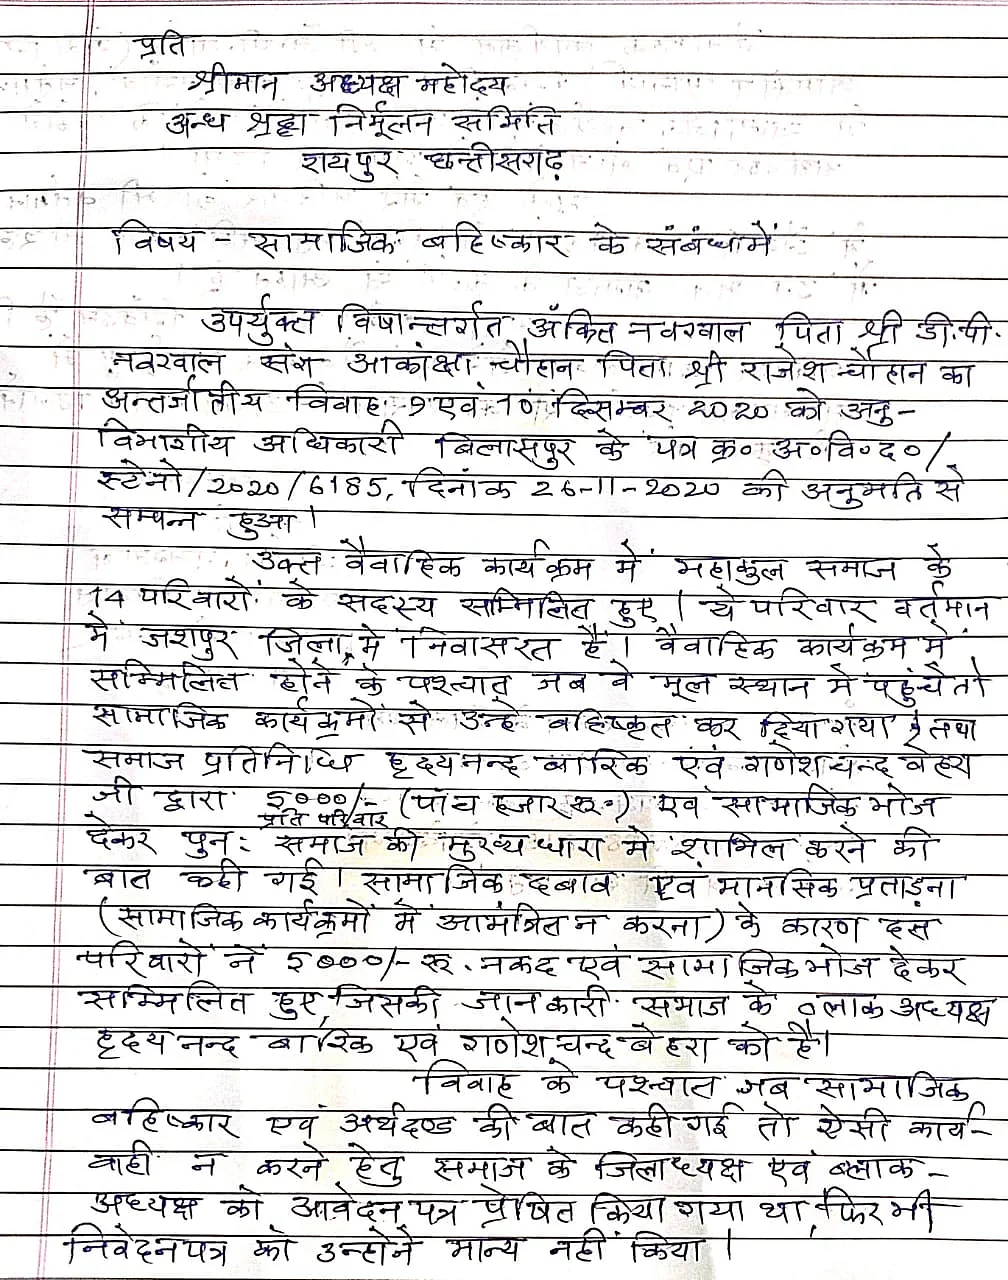 प्रति
श्रीमान अध्यक्ष महोदय
अन्ध श्रद्धा निर्मूलन समिति
रायपुर छत्तीसगढ़
विषय - सामाजिक बहिष्कार के संबंध में
उपर्युक्त विषान्तर्गत अंकित नवरवाल पिता श्री डी.पी.
नवरवाल संग आकांक्षा चौहान पिता श्री राजेश चौहान का
अन्तर्जातीय विवाह 9 एवं 10 दिसम्बर 2020 को अनु-
विभागीय अधिकारी बिलासपुर के पत्र क्र० अ०वि०द०/
स्टेनो/2020/6185, दिनांक 26-11-2020 की अनुमति से
सम्पन्न हुआ।
उक्त वैवाहिक कार्यक्रम में महाकुल समाज के
14 परिवारों के सदस्य सम्मिलित हुए। ये परिवार वर्तमान
में जशपुर जिला में निवासरत हैं। वैवाहिक कार्यक्रम में
सम्मिलित होने के पश्चात् जब वे मूल स्थान में पहुंचे तो
सामाजिक कार्यक्रमों से उन्हे बहिष्कृत कर दिया गया तथा
समाज प्रतिनिधि हृदयनन्द बारिक एवं गणेशचन्द बेहरा
जी द्वारा 5000/- (पांच हजार रू०) एवं सामाजिक भोज
प्रति परिवार
देकर पुन: समाज की मुख्य धारा मे शामिल करने की
बात कही गई। सामाजिक दबाव एवं मानसिक प्रताड़ना
(सामाजिक कार्यक्रमों में आमंत्रित न करना) के कारण दस
परिवारों नें 5000/- रू. नकद एवं सामाजिक भोज देकर
सम्मिलित हुए, जिसकी जानकारी समाज के ब्लाक अध्यक्ष
हृदय नन्द बारिक एवं गणेश चन्द बेहरा को है।
विवाह के पश्चात जब सामाजिक
बहिष्कार एवं अर्थदण्ड की बात कही गई तो ऐसी कार्य-
वाही न करने हेतु समाज के जिलाध्यक्ष एवं ब्लाक-
अध्यक्ष को आवेदन पत्र प्रेषित किया गया था, फिर भी
निवेदनपत्र को उन्होंने मान्य नहीं किया।